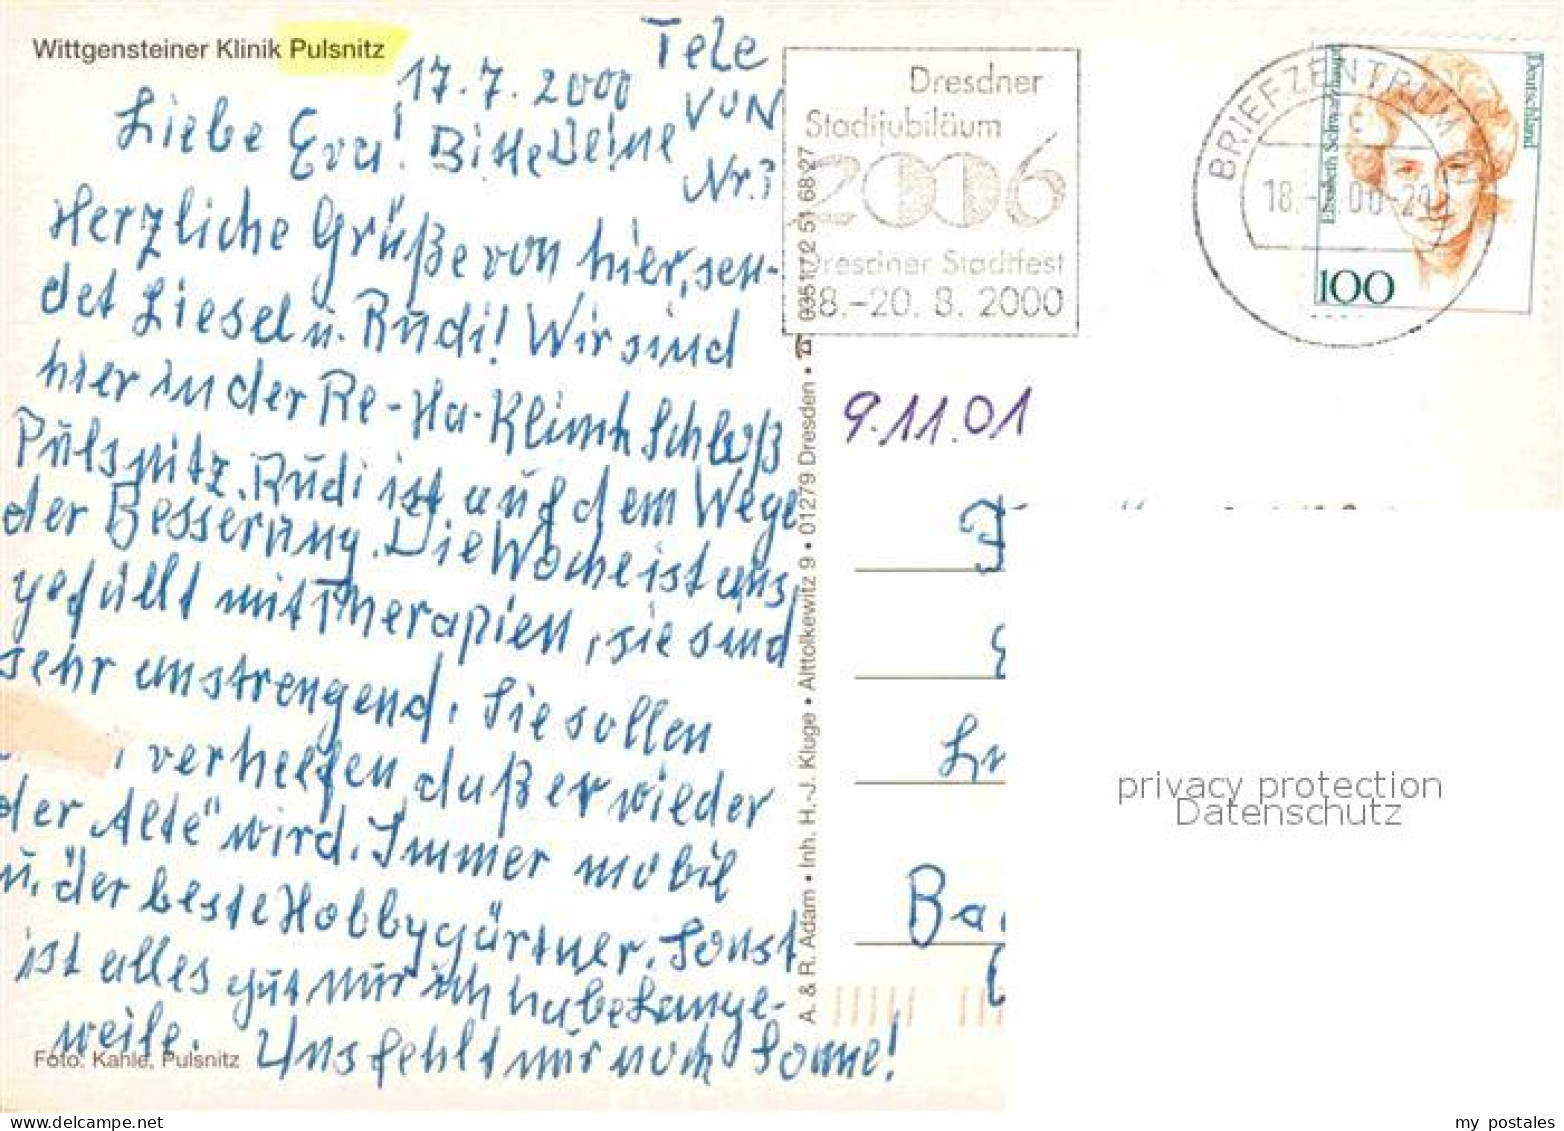 Wittgensteiner Klinik Pulsnitz
17.7.2000
Tele
VON
Nr.?
Liebe Eva! Bitte Deine
Herzliche Grüße von hier, sen-
det Liesel u. Rudi! Wir sind
hier in der Re-Ha-Klinik Schloß
Pulsnitz. Rudi ist auf dem Wege
der Besserung. Die Woche ist aus
gefüllt mit Therapien, sie sind
sehr anstrengend. Sie sollen
verhelfen daß er wieder
der "Alte" wird. Immer mobil
u. der beste Hobbygärtner. Sonst
ist alles gut nur ich habe Lange-
weile. Uns fehlt nur noch Sonne!
Foto: Kahle, Pulsnitz
A. & R. Adam • Inh. H.-J. Kluge • Alttolkewitz 9 • 01279 Dresden • ☎ 0351 / 2 51 68 27
Dresdner
Stadtjubiläum
2006
Dresdner Stadtfest
18.-20. 8. 2000
BRIEFZENTRUM
18.-
00-21
Elisabeth Schwarzhaupt
Deutschland
100
9.11.01
Ba
privacy protection
Datenschutz
my postales